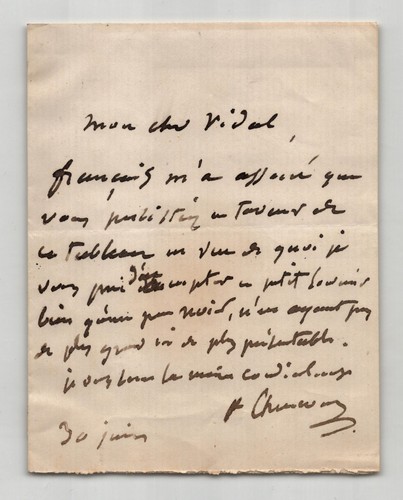 Mon cher Vidal,
françois m'a assuré que
vous en faveur de
ce tableau en vue de quoi je
vous prie d'accepter ce petit souvenir
bien peu noir, n'en ayant pas
de plus grand ni de plus présentable.
je vous serre la main cordialement
30 juin